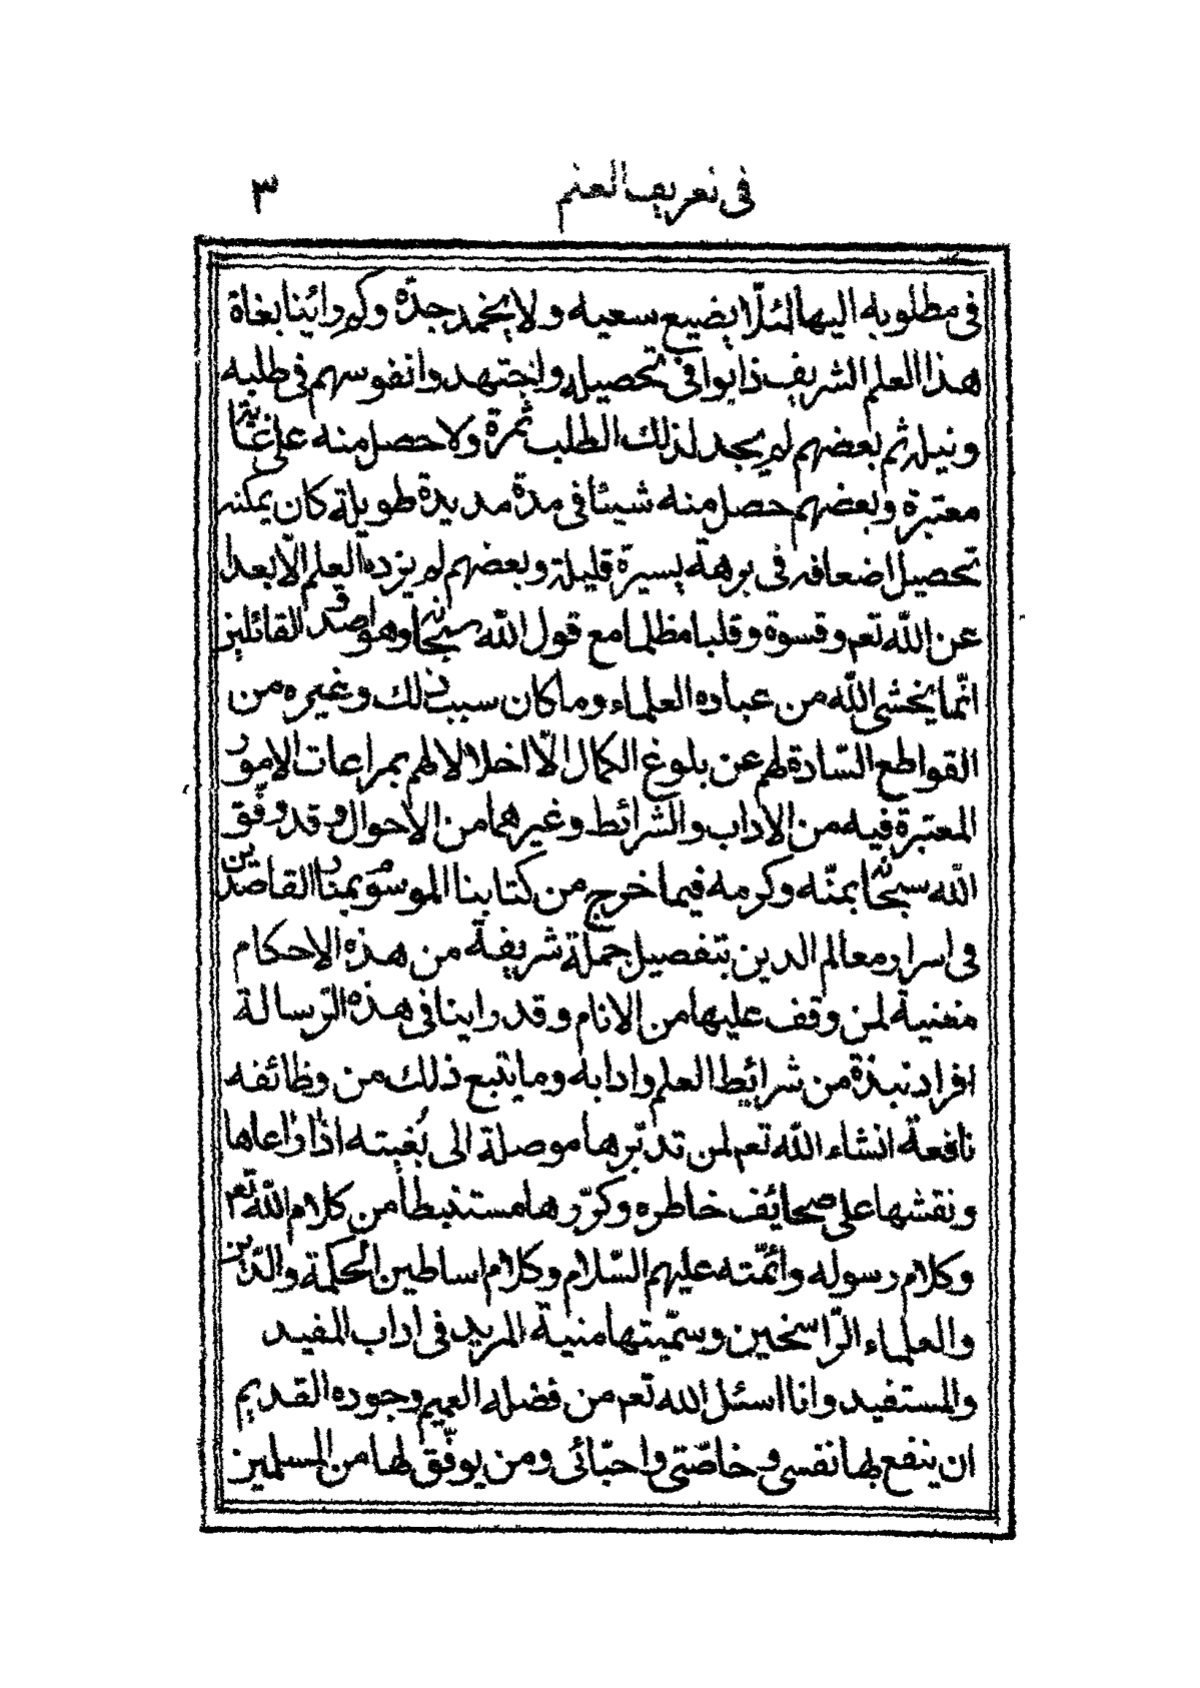 في تعريف العلم ٣
في مطلوبه اليها لئلّا يضيع سعيه ولا يخمد جدّه وكم راينا بغاة
هذا العلم الشريف ذابوا في تحصيله واجتهدوا نفوسهم في طلبه
ونيله ثم بعضهم لم يجد لذلك الطلب ثمرة ولا حصل منه على غاية
معتبرة وبعضهم حصل منه شيئا في مدة مديدة طويلة كان يمكنه
تحصيل اضعافه في برهة يسيرة قليلة وبعضهم لم يزده العلم الّا بعدا
عن اللّه تعم وقسوة وقلبا مظلما مع قول اللّه سبحانه وهو اصدق القائلين
انّما يخشى اللّه من عباده العلماء وما كان سبب ذلك وغيره من
القواطع السّادة لهم عن بلوغ الكمال الّا اخلالا لهم بمراعات الامور
المعتبرة فيه من الاداب والشرائط وغيرهما من الاحوال وقد وفّق
اللّه سبحانه بمنّه وكرمه فيما خرج من كتابنا الموسوم بمنار القاصدين
في اسرار معالم الدين بتفصيل جملة شريفة من هذه الاحكام
مغنية لمن وقف عليها من الانام وقد راينا في هذه الرّسالة
افراد نبذة من شرائط العلم وادابه وما يتبع ذلك من وظائفه
نافعة انشاء اللّه تعم لمن تدبّرها موصلة الى بُغيته اذا راعاها
ونقشها على صحايف خاطره وكرّرها مستنبطاً من كلام اللّه تعم
وكلام رسوله وائمّته عليهم السّلام وكلام اساطين الحكمة والدّين
والعلماء الرّاسخين وسمّيتها منية المريد في اداب المفيد
والمستفيد وانا اسئل اللّه تعم من فضله العميم وجوده القديم
ان ينفع بها نفسي وخاصّتي واحبّائي ومن يوفّق لها من المسلمين